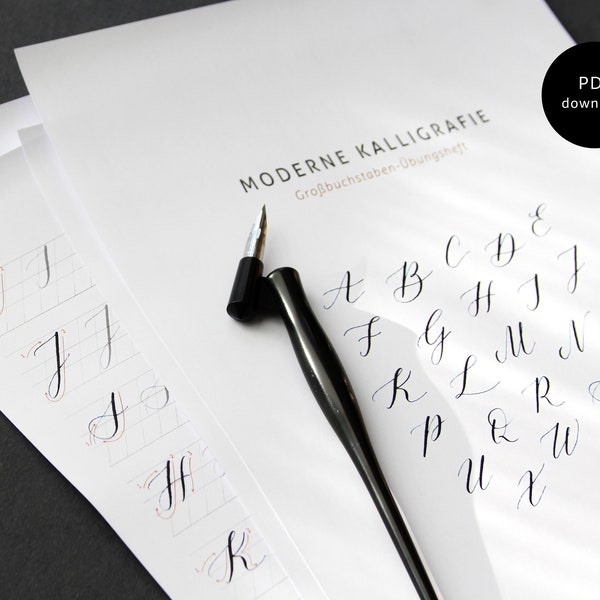 PD
down
MODERNE KALLIGRAFIE
Großbuchstaben-Übungsheft
A B C D E
F G H I J
K L M N
P Q R
U W
X
J
J J
H
K